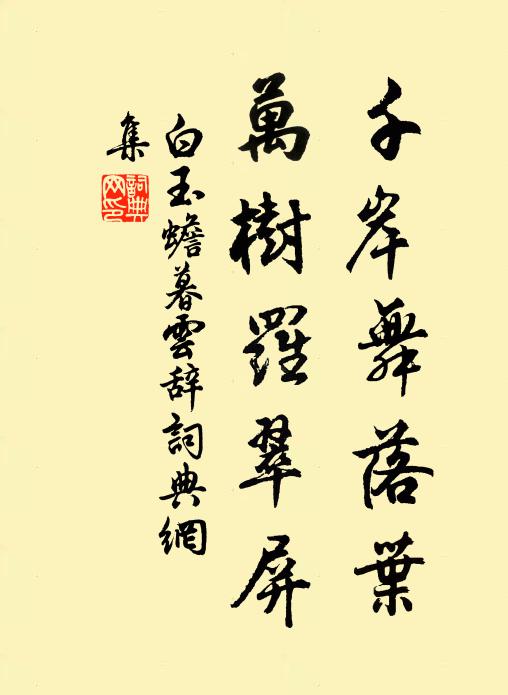 千岸舞落葉
萬樹羅翠屏
白玉蟾暮雲辞詞典網
集
詞典网印